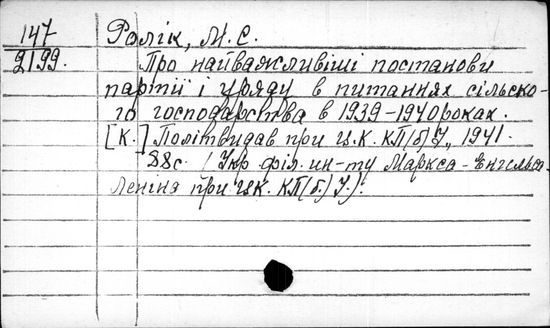 147 Ролік, М. С.
2199. Про найважливіші постанови
партії і уряду в питаннях сільсько-
го господарства в 1939-1940 роках.
[К.] Політвидав при ЦК. КП(б)У, 1941.
88с. (Укр філ. ин-ту Маркса-Енгельса-
Леніна при ЦК. КП(б.)У.).